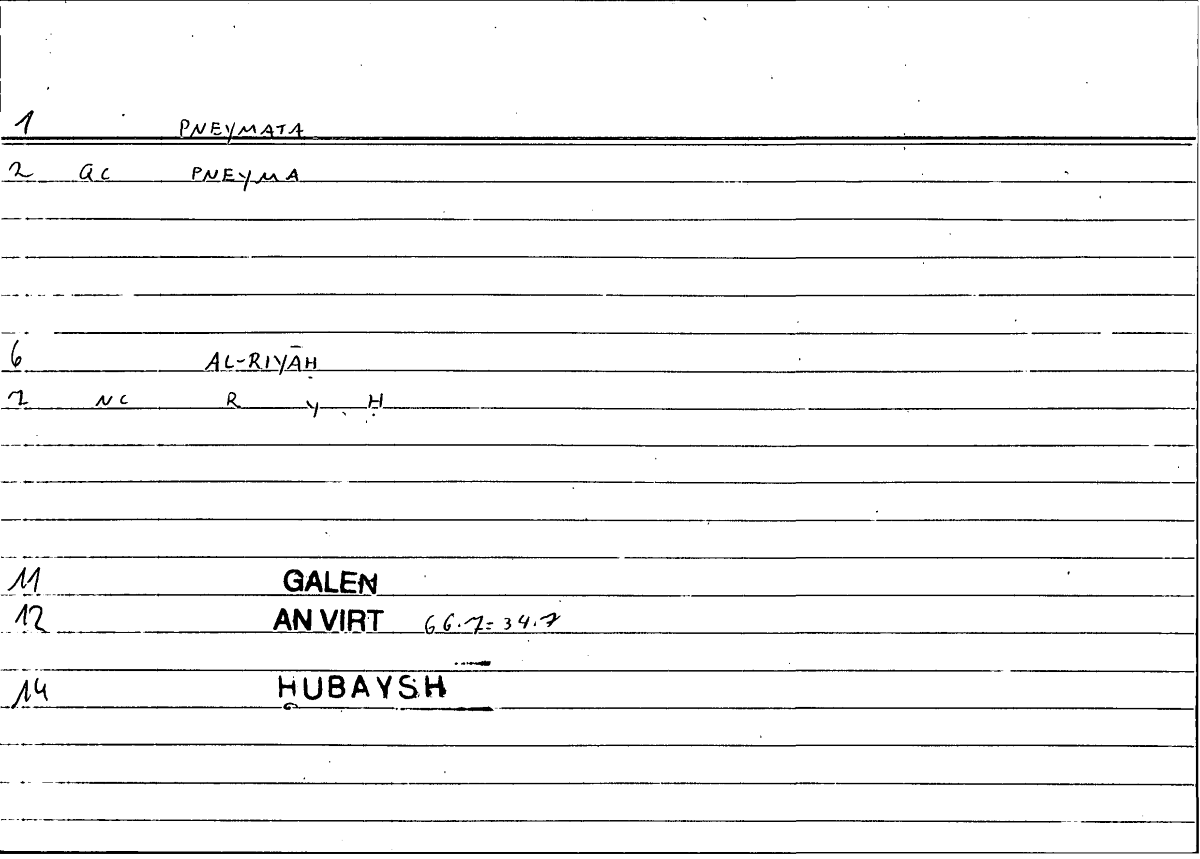 1 PNEYMATA
2 QC PNEYMA
6 AL-RIYĀḤ
7 NC R Y Ḥ
11 GALEN
12 AN VIRT 66.7=34.7
14 HUBAYSH